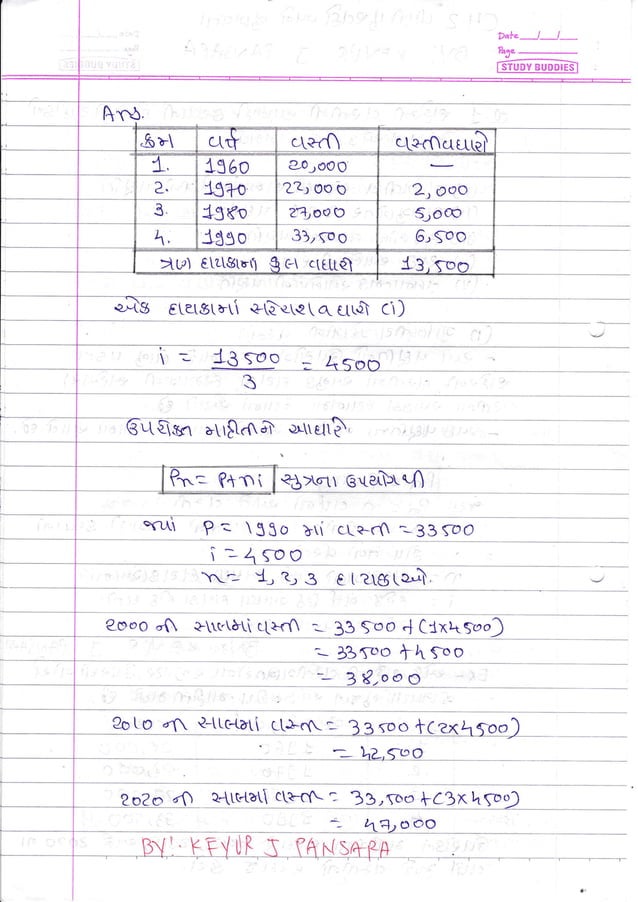 Date __/__/__
Page ____
STUDY BUDDIES
Ans.
ક્રમ વર્ષ વસ્તી વસ્તીવધારો
1. 1960 20,000 —
2. 1970 22,000 2,000
3. 1980 27,000 5,000
4. 1990 33,500 6,500
ત્રણ દાયકાનો કુલ વધારો 13,500
એક દાયકામાં સરેરાશ વધારો (i)
i = 13500/3 = 4500
ઉપરોક્ત માહીતીને આધારે
Pn = P+ni સુત્રના ઉપયોગથી
જ્યાં P = 1990 માં વસ્તી = 33500
i = 4500
n = 1, 2, 3 દાયકાઓ.
2000 ની સાલમાં વસ્તી = 33500 + (1x4500)
= 33500 + 4500
= 38,000
2010 ની સાલમાં વસ્તી = 33500 + (2x4500)
= 42,500
2020 ની સાલમાં વસ્તી = 33,500 + (3x4500)
= 47,000
BY:- KEYUR J PANSARA